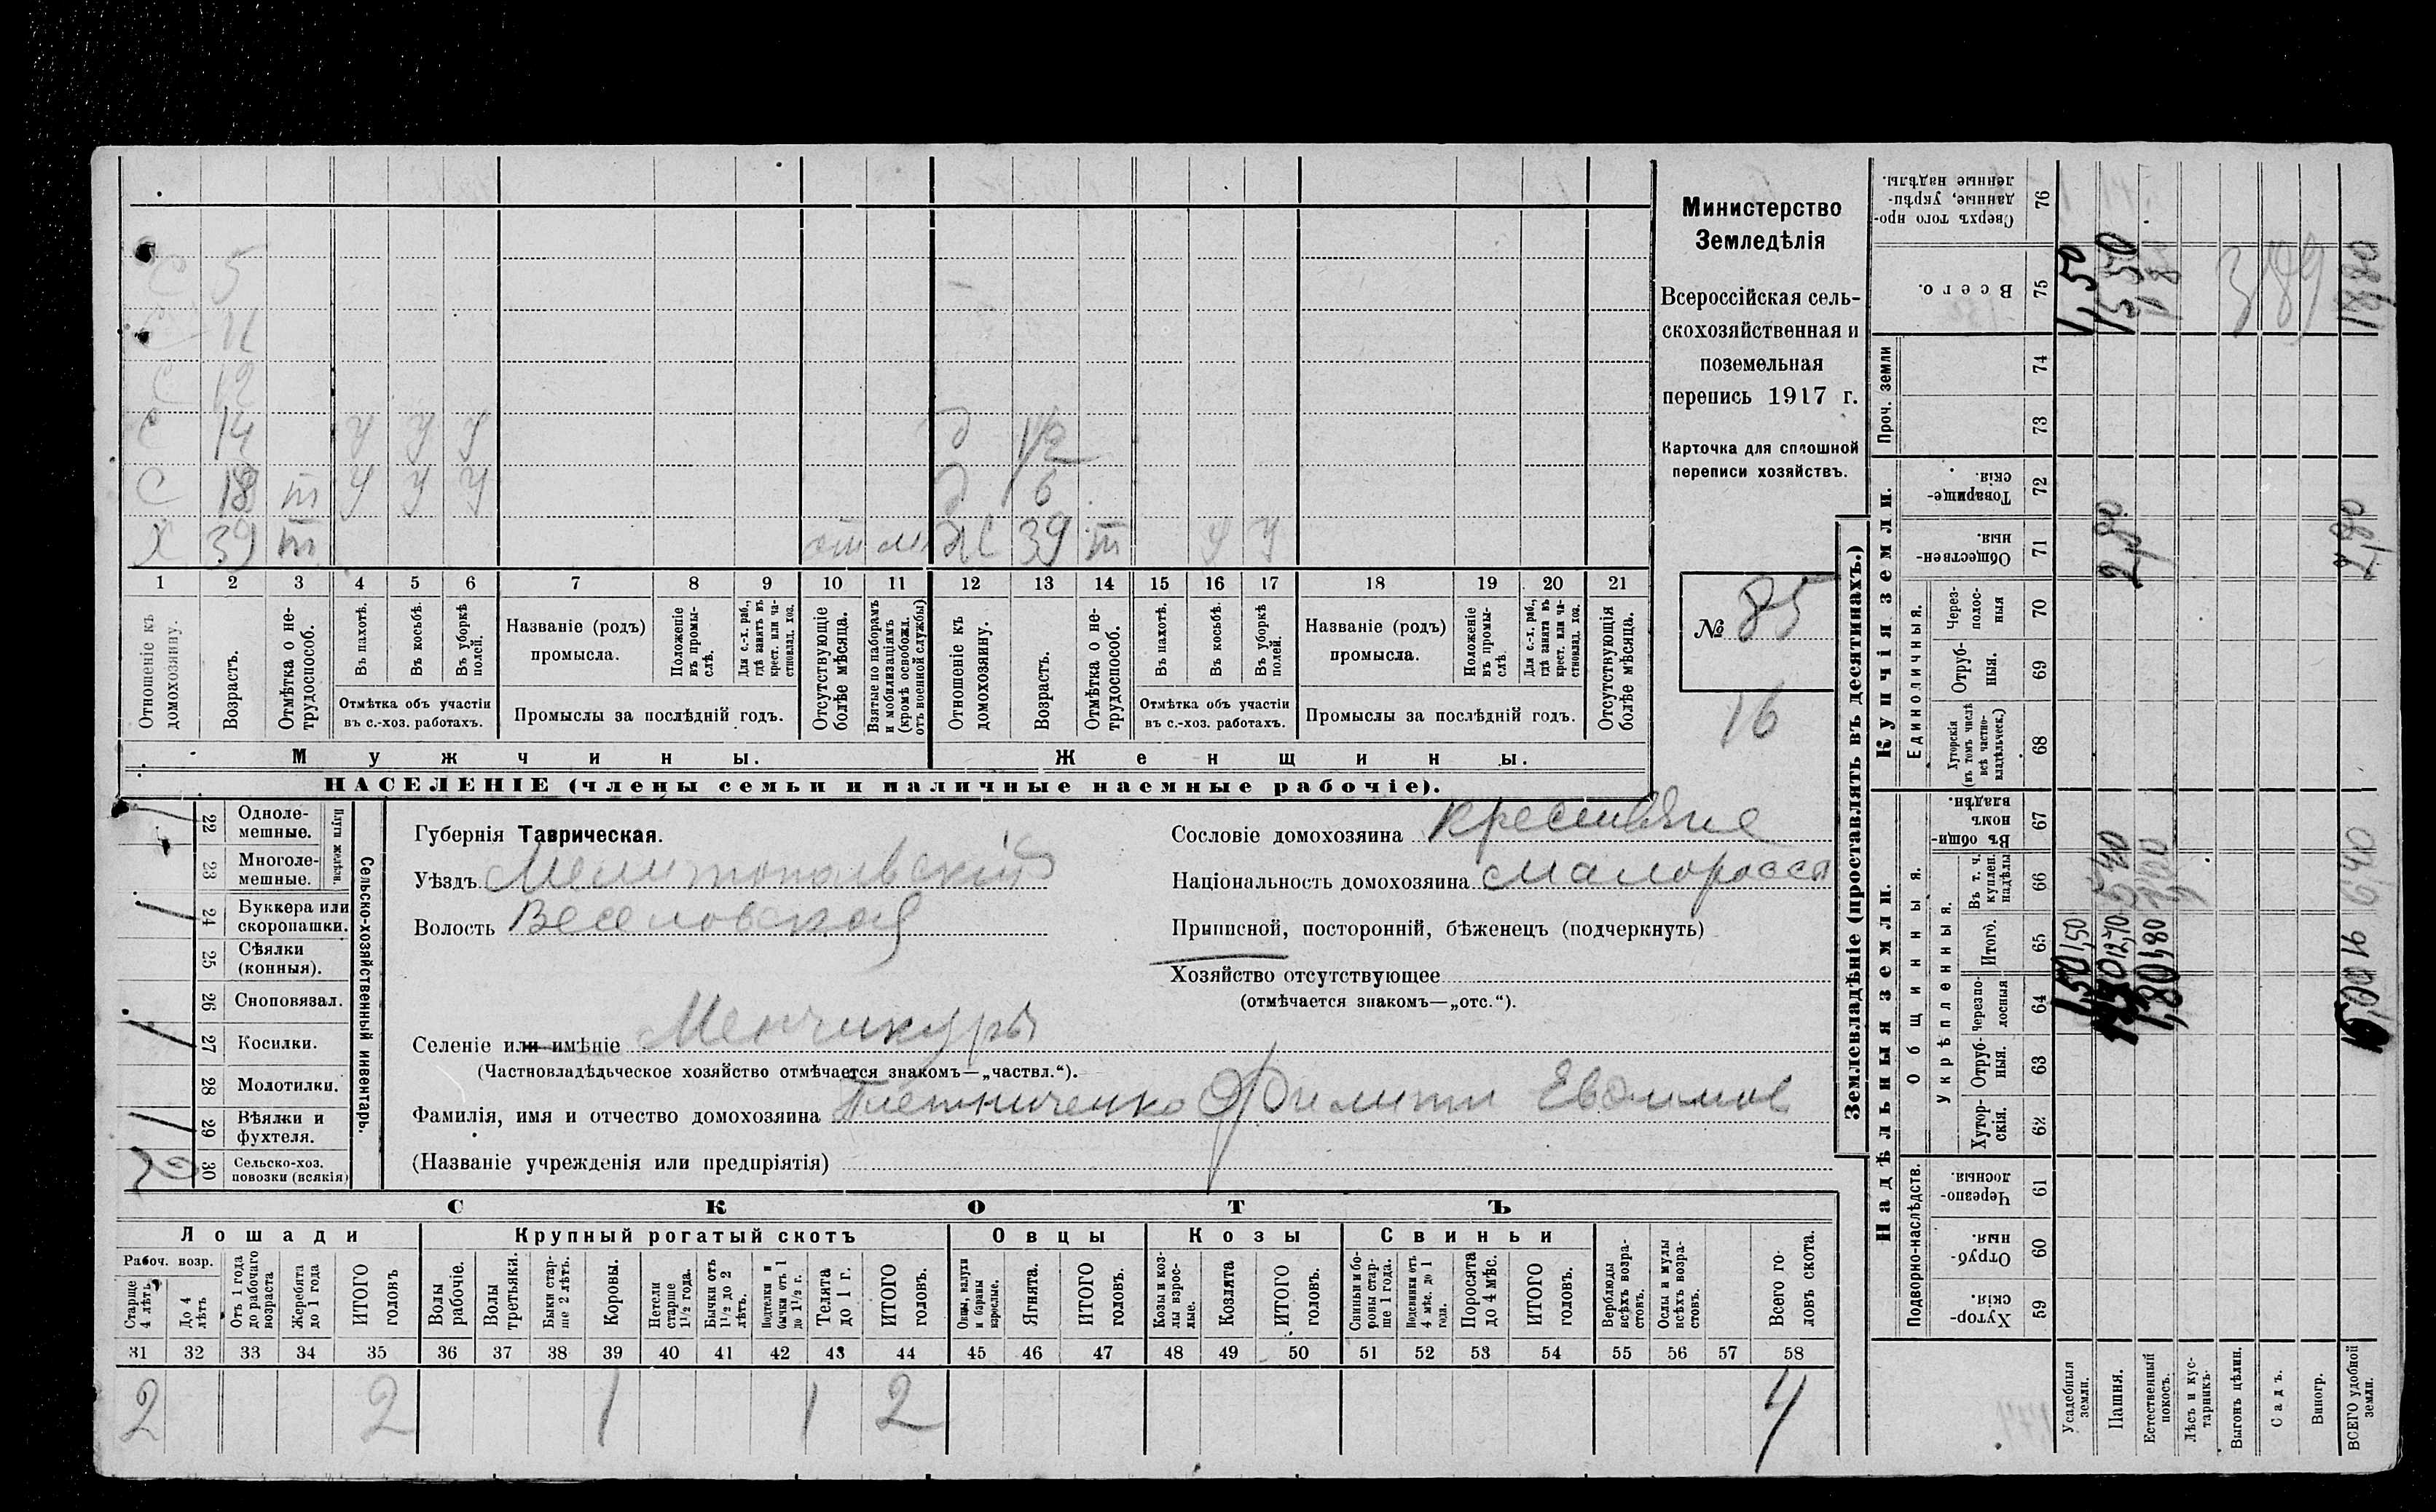 С 5
С 11
С 12
С 14 У У У д 1/2
С 18 т У У У д 6
Х 39 т от м Ж 39 т У У
1 2 3 4 5 6 7 8 9 10 11 12 13 14 15 16 17 18 19 20 21
Отношеніе къ домохозяину.
Возрастъ.
Отмѣтка о не-
трудоспособ.
Въ пахотѣ.
Въ косьбѣ.
Въ уборкѣ полей.
Отмѣтка объ участіи
въ с.-хоз. работахъ.
Названіе (родъ)
промысла.
Положеніе въ промы-
слѣ.
Для с.-х. раб., гдѣ занятъ въ крест. или ча-
стновлад. хоз.
Промыслы за послѣдній годъ.
Отсутствующіе болѣе мѣсяца.
Взятые по наборамъ и мобилизаціямъ (кромѣ освобожд. отъ военной службы)
Отношеніе къ домохозяину.
Возрастъ.
Отмѣтка о не-
трудоспособ.
Въ пахотѣ.
Въ косьбѣ.
Въ уборкѣ полей.
Отмѣтка объ участіи
въ с.-хоз. работахъ.
Названіе (родъ)
промысла.
Положеніе въ промы-
слѣ.
Для с.-х. раб., гдѣ занята въ крест. или ча-
стновлад. хоз.
Промыслы за послѣдній годъ.
Отсутствующія болѣе мѣсяца.
Мужчины.
Женщины.
НАСЕЛЕНІЕ (члены семьи и наличные наемные рабочіе).
Министерство
Земледѣлія
Всероссійская сель-
скохозяйственная и
поземельная
перепись 1917 г.
Карточка для сплошной
переписи хозяйствъ.
№ 85
16
22 Одноле-
мешные.
23 Многоле-
мешные.
Плуги желѣзн.
24 Буккера или
скоропашки.
25 Сѣялки
(конныя).
26 Сноповязал.
27 Косилки.
28 Молотилки.
29 Вѣялки и
фухтеля.
30 Сельско-хоз.
повозки (всякія)
2
Сельско-хозяйственный инвентарь.
Губернія Таврическая.
Уѣздъ Мелитопольскій
Волость Веселовская
Сословіе домохозяина крестьяне
Національность домохозяина малороссъ
Приписной, посторонній, бѣженецъ (подчеркнуть)
Хозяйство отсутствующее
(отмѣчается знакомъ—„отс.“).
Селеніе или имѣніе Менчикуры
(Частновладѣльческое хозяйство отмѣчается знакомъ—„частвл.“).
Фамилія, имя и отчество домохозяина Плетниченко Филиппъ Евдимов
(Названіе учрежденія или предпріятія)
СКОТЪ
Лошади
Рабоч. возр.
Старше 4 лѣтъ.
До 4 лѣтъ
Отъ 1 года до рабочаго возраста
Жеребята до 1 года
ИТОГО головъ
Крупный рогатый скотъ
Волы рабочіе.
Волы третьяки.
Быки стар-
ше 2 лѣтъ.
Коровы.
Нетели старше 1½ года.
Бычки отъ 1½ до 2 лѣтъ.
Подтелки и бычки отъ 1 до 1½ г.
Телята до 1 г.
ИТОГО головъ.
Овцы
Овцы, валухи и бараны взрослые.
Ягнята.
ИТОГО головъ.
Козы
Козы и коз-
лы взрос-
лые.
Козлята
ИТОГО головъ.
Свиньи
Свиньи и бо-
ровы стар-
ше 1 года.
Подсвинки отъ 4 мѣс. до 1 года.
Поросята до 4 мѣс.
ИТОГО головъ.
Верблюды всѣхъ возра-
стовъ.
Ослы и мулы всѣхъ возра-
стовъ.
Всего го-
ловъ скота.
31 32 33 34 35 36 37 38 39 40 41 42 43 44 45 46 47 48 49 50 51 52 53 54 55 56 57 58
2 2 1 1 2 4
Землевладѣніе (проставлять въ десятинахъ.)
Надѣльныя земли.
Купчія земли.
Проч. земли
Подворно-наслѣдств.
Общинныя.
Укрѣпленныя.
Единоличныя.
Хутор-
скія. 59
Отруб-
ныя. 60
Черезпо-
лосныя. 61
Хутор-
скія. 62
Отруб-
ныя. 63
Черезпо-
лосныя 64
Итого. 65
Въ т. ч. куплен. надѣлы 66
Въ общи-
номъ владѣн. 67
Хуторскія (въ томъ числѣ всѣ частно-
владѣльческ.) 68
Отруб-
ныя. 69
Через-
полос-
ныя 70
Обществен-
ныя. 71
Товарище-
скія. 72
73
74
Всего. 75
Сверхъ того про-
данные, укрѣп-
ленные надѣлы. 76
Усадебныя земли. 1,50 1,50 1,50
Пашня. 12,70 5,40 2,80 15,50
Естественный покосъ. 1,80 1,80
Лѣсъ и кус-
тарникъ.
Выгонъ цѣлин. 3
Садъ. 89
Виногр.
ВСЕГО удобной земли. 16 6,40 2,80 18,80